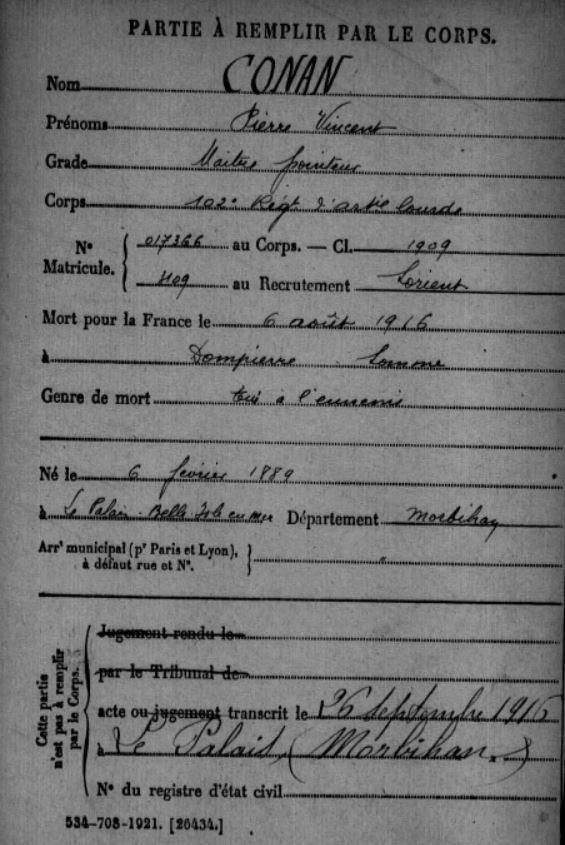 PARTIE À REMPLIR PAR LE CORPS.
Nom CONAN
Prénoms Pierre Vincent
Grade Maître pointeur
Corps 102e Régt d'artie lourde
N° Matricule. 017366 au Corps. — Cl. 1909
4109 au Recrutement Lorient
Mort pour la France le 6 août 1916
à Dompierre Somme
Genre de mort tué à l'ennemi
Né le 6 février 1889
à Le Palais Belle Isle en mer Département Morbihan
Arrt municipal (pr Paris et Lyon),
à défaut rue et N°. "
Cette partie
n'est pas à remplir
par le Corps.
Jugement rendu le
par le Tribunal de
acte ou jugement transcrit le 26 septembre 1916
à Le Palais (Morbihan)
N° du registre d'état civil
534-708-1921. [26434.]